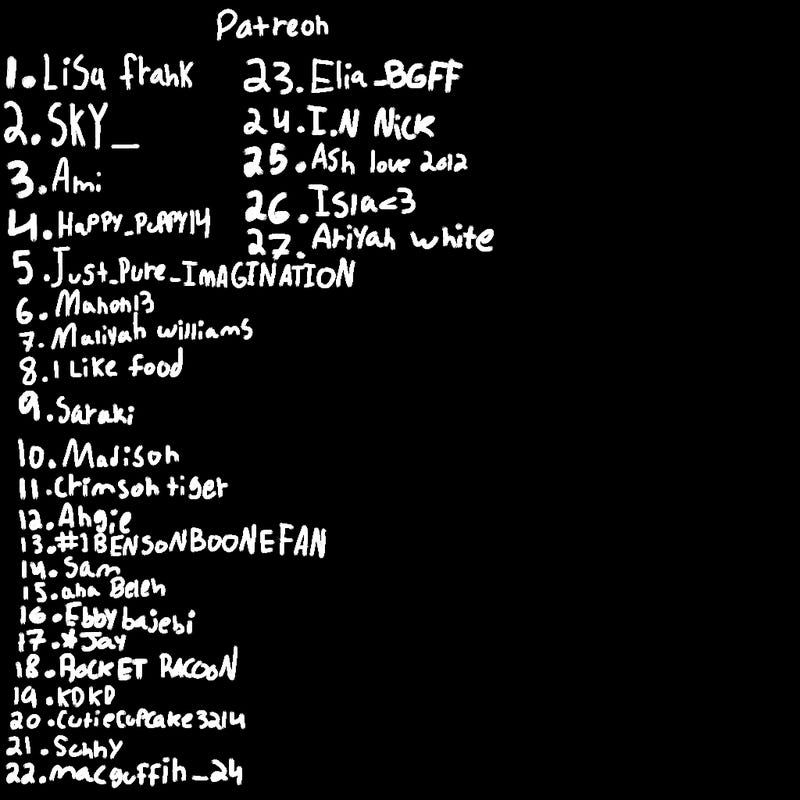 Patreon
1. Lisa frank
2. SKY_
3. Ami
4. HaPPY_PuPPY14
5. Just_Pure_ImAGINATION
6. Manon13
7. Maliyah williams
8. I Like food
9. Saraki
10. Madison
11. Crimson tiger
12. Angie
13. #1BENSoNBOONEFAN
14. Sam
15. ana Belen
16. Ebby bajebi
17. *Jay
18. ROCKET RACCOON
19. KOKO
20. CutieCupCake3214
21. Sunny
22. macguffin_24
23. Elia_BGFF
24. I.N NicK
25. Ash love 2012
26. Isla<3
27. Ariyah white